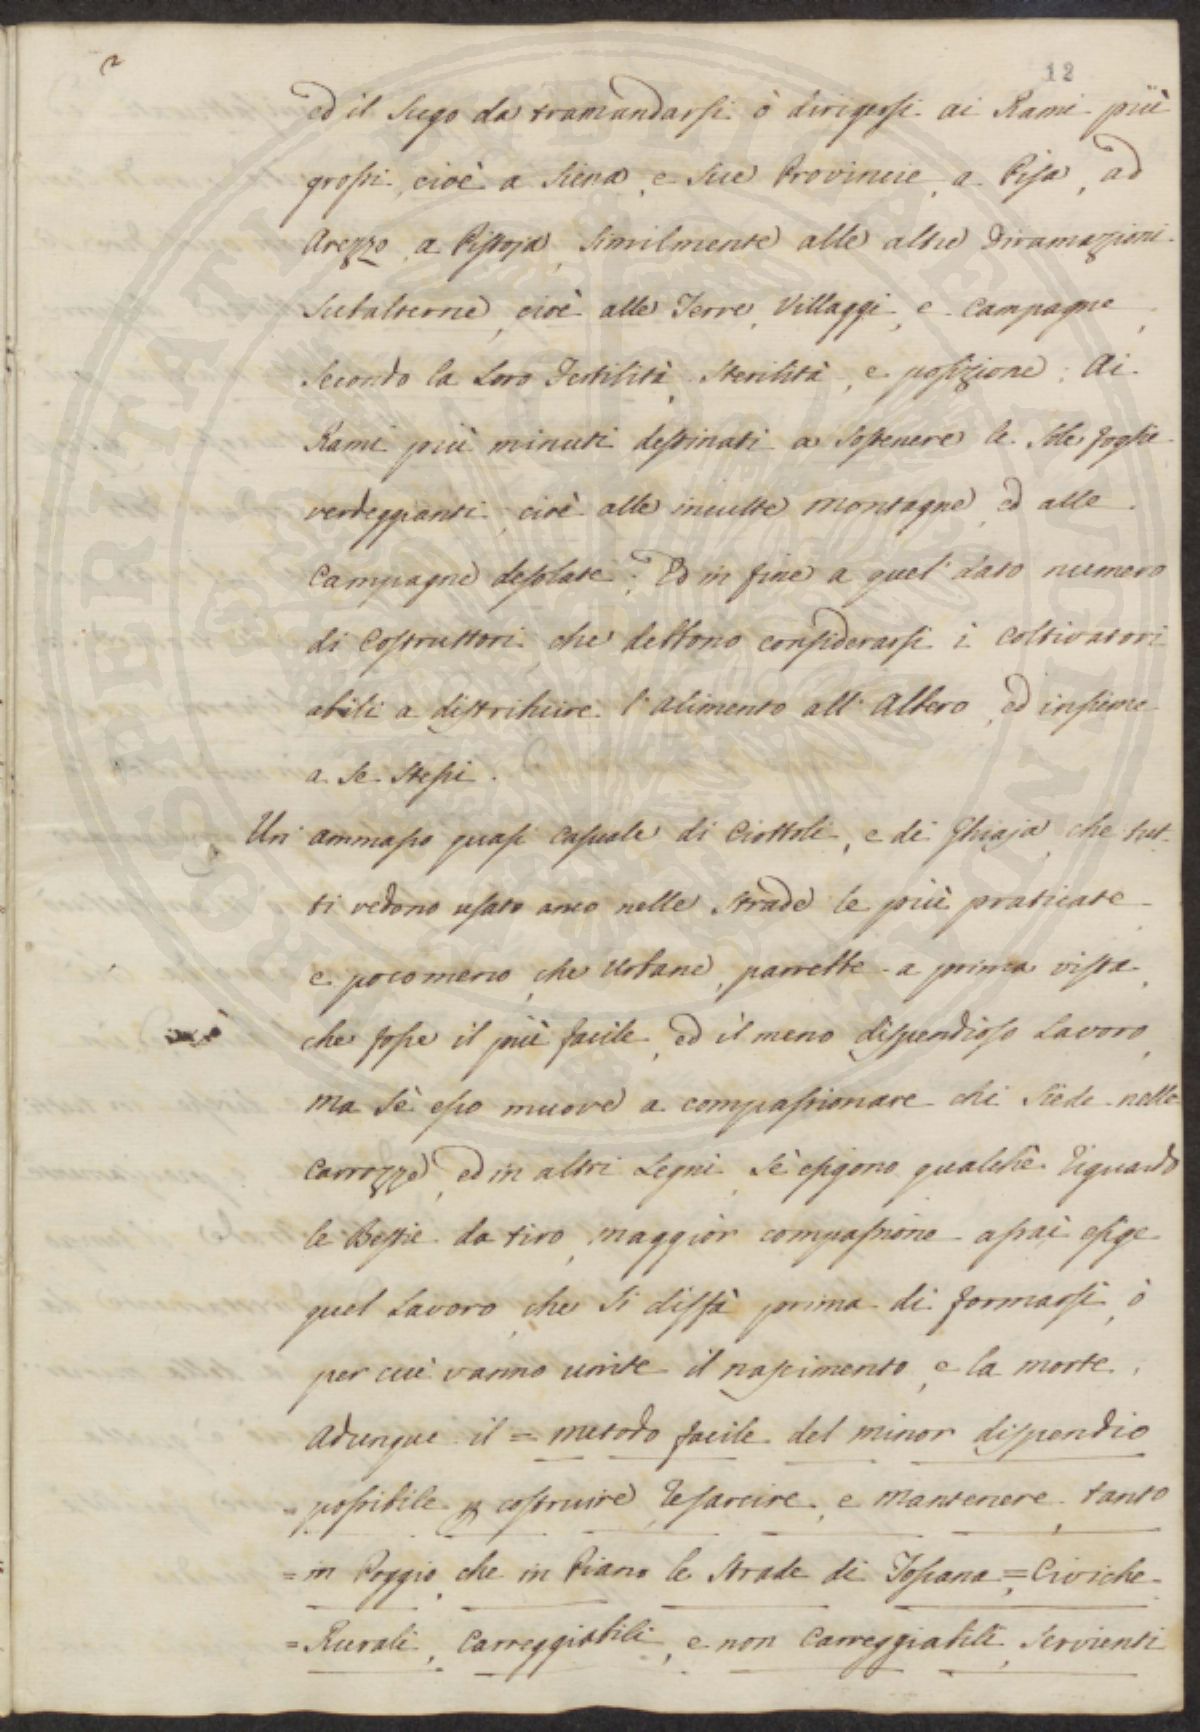 2
12
ed il Sugo da tramandarsi ò dirigersi ai Rami più
grossi, cioè a Siena, e sue Provincie, a Pisa, ad
Arezzo, a Pistoja, similmente alle altre Diramazioni
subalterne, cioè alle Terre, Villaggi, e Campagne,
secondo la loro Fertilità, sterilità, e posizione; Ai
Rami più minuti destinati a sostenere le sole foglie
verdeggianti, cioè alle inculte Montagne, ed alle
Campagne desolate; Ed in fine a quel dato numero
di Costruttori, che debbono considerarsi i Coltivatori
abili a distribuire l'alimento all'Albero, ed insieme
a se stessi.
Un ammasso quasi casuale di Ciottoli, e di Ghiaja, che tut-
ti vedono usato anco nelle Strade le più praticate
e pocomeno, che Urbane, parrebbe a prima vista,
che fosse il più facile, ed il meno dispendioso Lavoro,
ma sè esso muove a compassionare chi siede nelle
Carrozze, ed in altri Legni, sè esigono qualche riguardo
le Bestie da tiro, maggior compassione assai esige
quel Lavoro, che si disfà prima di formarsi, ò
per cui vanno unite il nascimento, e la morte.
Adunque il = metodo facile del minor dispendio
= possibile p costruire, resarcire, e mantenere, tanto
= in Poggio, che in Piano le Strade di Toscana = Civiche
= Rurali, Carreggiabili, e non Carreggiabili, servienti
SPERITATI